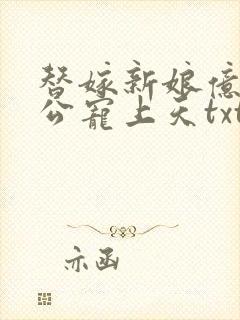 替嫁新娘億
公寵上天txt
亦函